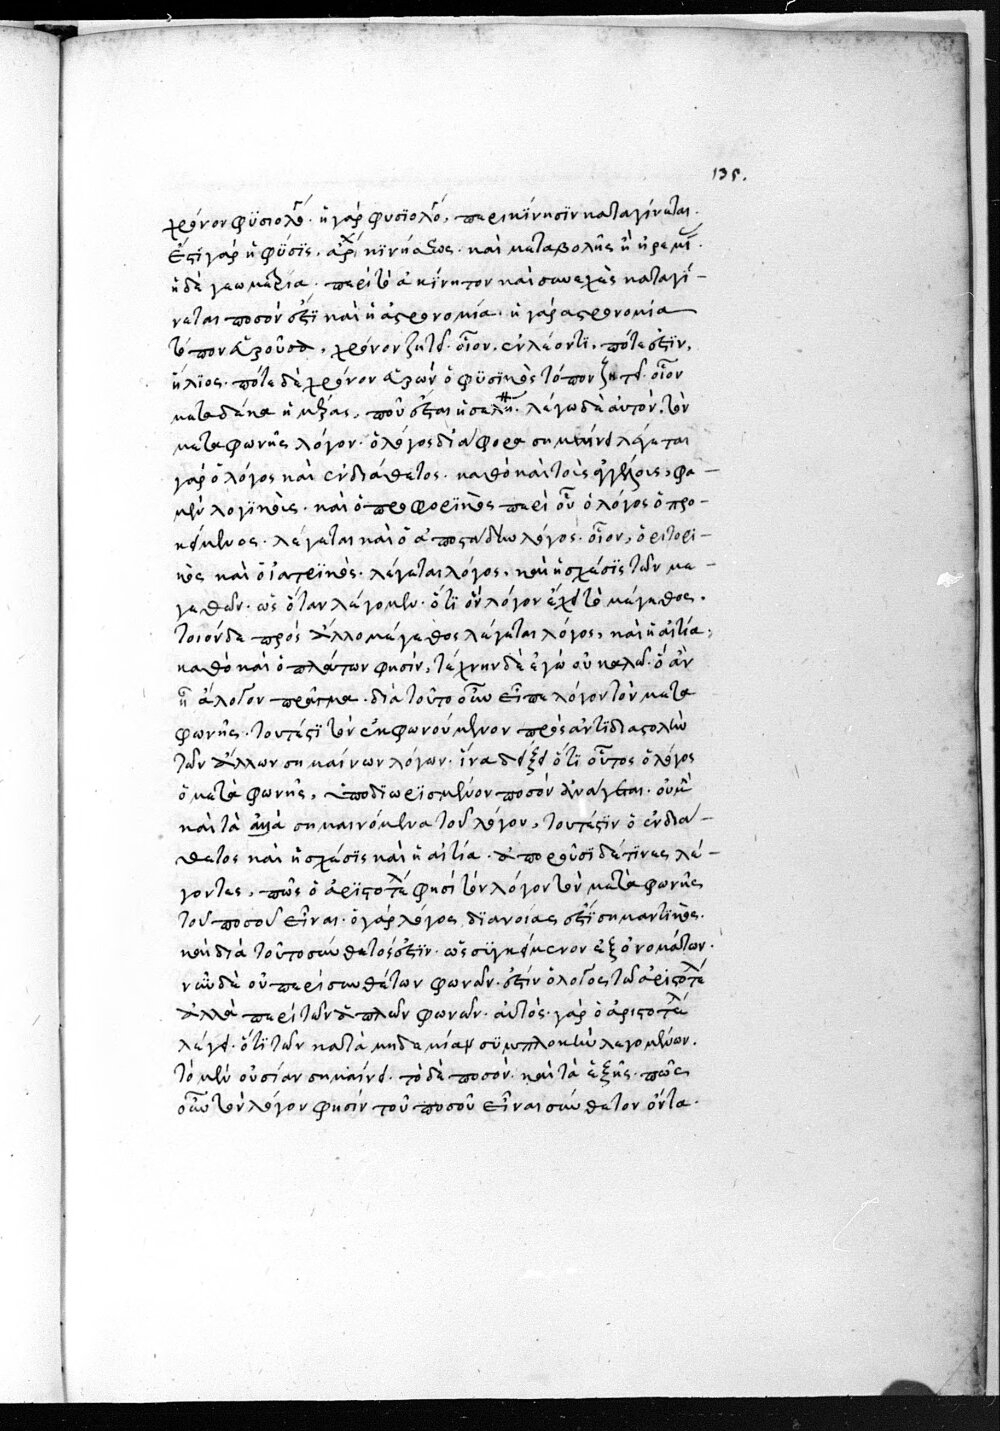 135.
χρόνον φϋσιολό· ἡ γὰρ φυσϊολό, περι κίνησϊν καταγίνεται·
ἔστϊ γὰρ ἡ φύσϊς, ἀρχ κϊνήσεως· καὶ μεταβολῆς ἢ ἠρεμί·
ἡ δὲ γεωμετρία· περὶ τὸ ἀκίνητον καὶ συνεχὲς καταγί-
νεται ποσόν ἐστϊ καὶ ἡ ἀστρονομία· ἡ γὰρ αστρονομία
τόπον ἔχουσα, χρόνον ζητεῖ· οἷον, ἐν λέοντϊ, πότε ἐστϊν,
ἥλϊος· πότε δὲ χρόνον ἔχων ὁ φϋσϊκὸς τόπον ζητεῖ· οἷον
μετα δέκα ἡμέρας, ποῦ ἔσται ἡ σελή· λέγω δὲ αὐτὸν, τὸν
μετα φωνῆς λόγον· ὁ λόγος διάφορα σημαίνει λέγεται
γὰρ ὁ λόγος καὶ ἐνδιάθετος· καθὸ καὶ τοὺς ἀγγέλους, φα-
μὲν λογϊκούς· καὶ ὁ προφορϊκὸς περὶ οὗ ὁ λόγος ὁ προ-
κείμενος· λέγεται καὶ ὁ ἀποστάζων λόγος· οἷον, ὁ ῥιτορι-
κὸς καὶ ὁ ἰατρϊκὸς· λέγεται λόγος, καὶ ἡ σχέσϊς τῶν με-
γεθῶν· ὡς ὅταν λέγομεν· ὅτϊ ὃν λόγον ἔχει τὸ μέγεθος,
τοιόνδε πρὸς ἄλλο μέγεθος λέγεται λόγος, καὶ ἡ αἰτία,
καθὸ καὶ ὁ πλάτων φησὶν, τέχνην δὲ ἐγὼ οὐ καλῶ· ὃ ἂν
ᾖ ἄλογον πρᾶγμα· διὰ τοῦτο οὖν εἶπε λόγον τὸν μετα
φωνῆς· τουτέστϊ τὸν ἐκφωνούμενον πρὸς ἀντϊδιαστολὴν
τῶν ἄλλων σημαίνων λόγων· ἵνα δείξει ὅτϊ οὗτος ὁ λόγος
ὁ μετὰ φωνῆς, ὑποδϊωρϊσμένον ποσὸν ἀνάγεται· οὐ μὴ
καὶ τὰ ἀλλὰ σημαινόμενα τοῦ λόγου, τουτέστϊν ὁ ἐνδιά-
θετος καὶ ἡ σχέσϊς καὶ ἡ αἰτία· ἀποροῦσϊ δέ τϊνες λέ-
γοντες, πῶς ὁ ἀρϊστοτέλ φησὶ τὸν λόγον τὸν μετὰ φωνῆς
τοῦ ποσοῦ εἶναι· ὁ γὰρ λόγος, διανοίας ἐστϊ σημαντϊκὸς·
καὶ διὰ τοῦτο σύνθετός ἐστϊν· ὡς σϋγκείμενον ἐξ ὀνομάτων·
νῦν δὲ οὐ περὶ συνθέτων φωνῶν· ἐστὶν ὁ λόγος τῶ ἀρϊστοτέλ
ἀλλὰ περὶ τῶν ἁπλῶν φωνῶν· αὐτὸς γὰρ ὁ ἀριστοτέλ
λέγει· ὅτϊ τῶν κατὰ μηδεμίαν σϋμπλοκὴν λεγομένων·
τὸ μὲν οὐσίαν σημαίνει· τὸ δὲ ποσόν· καὶ τὰ ἑξῆς· πῶς
οὖν τὸν λόγον φησὶν τοῦ ποσοῦ εἶναι σύνθετον ὄντα·